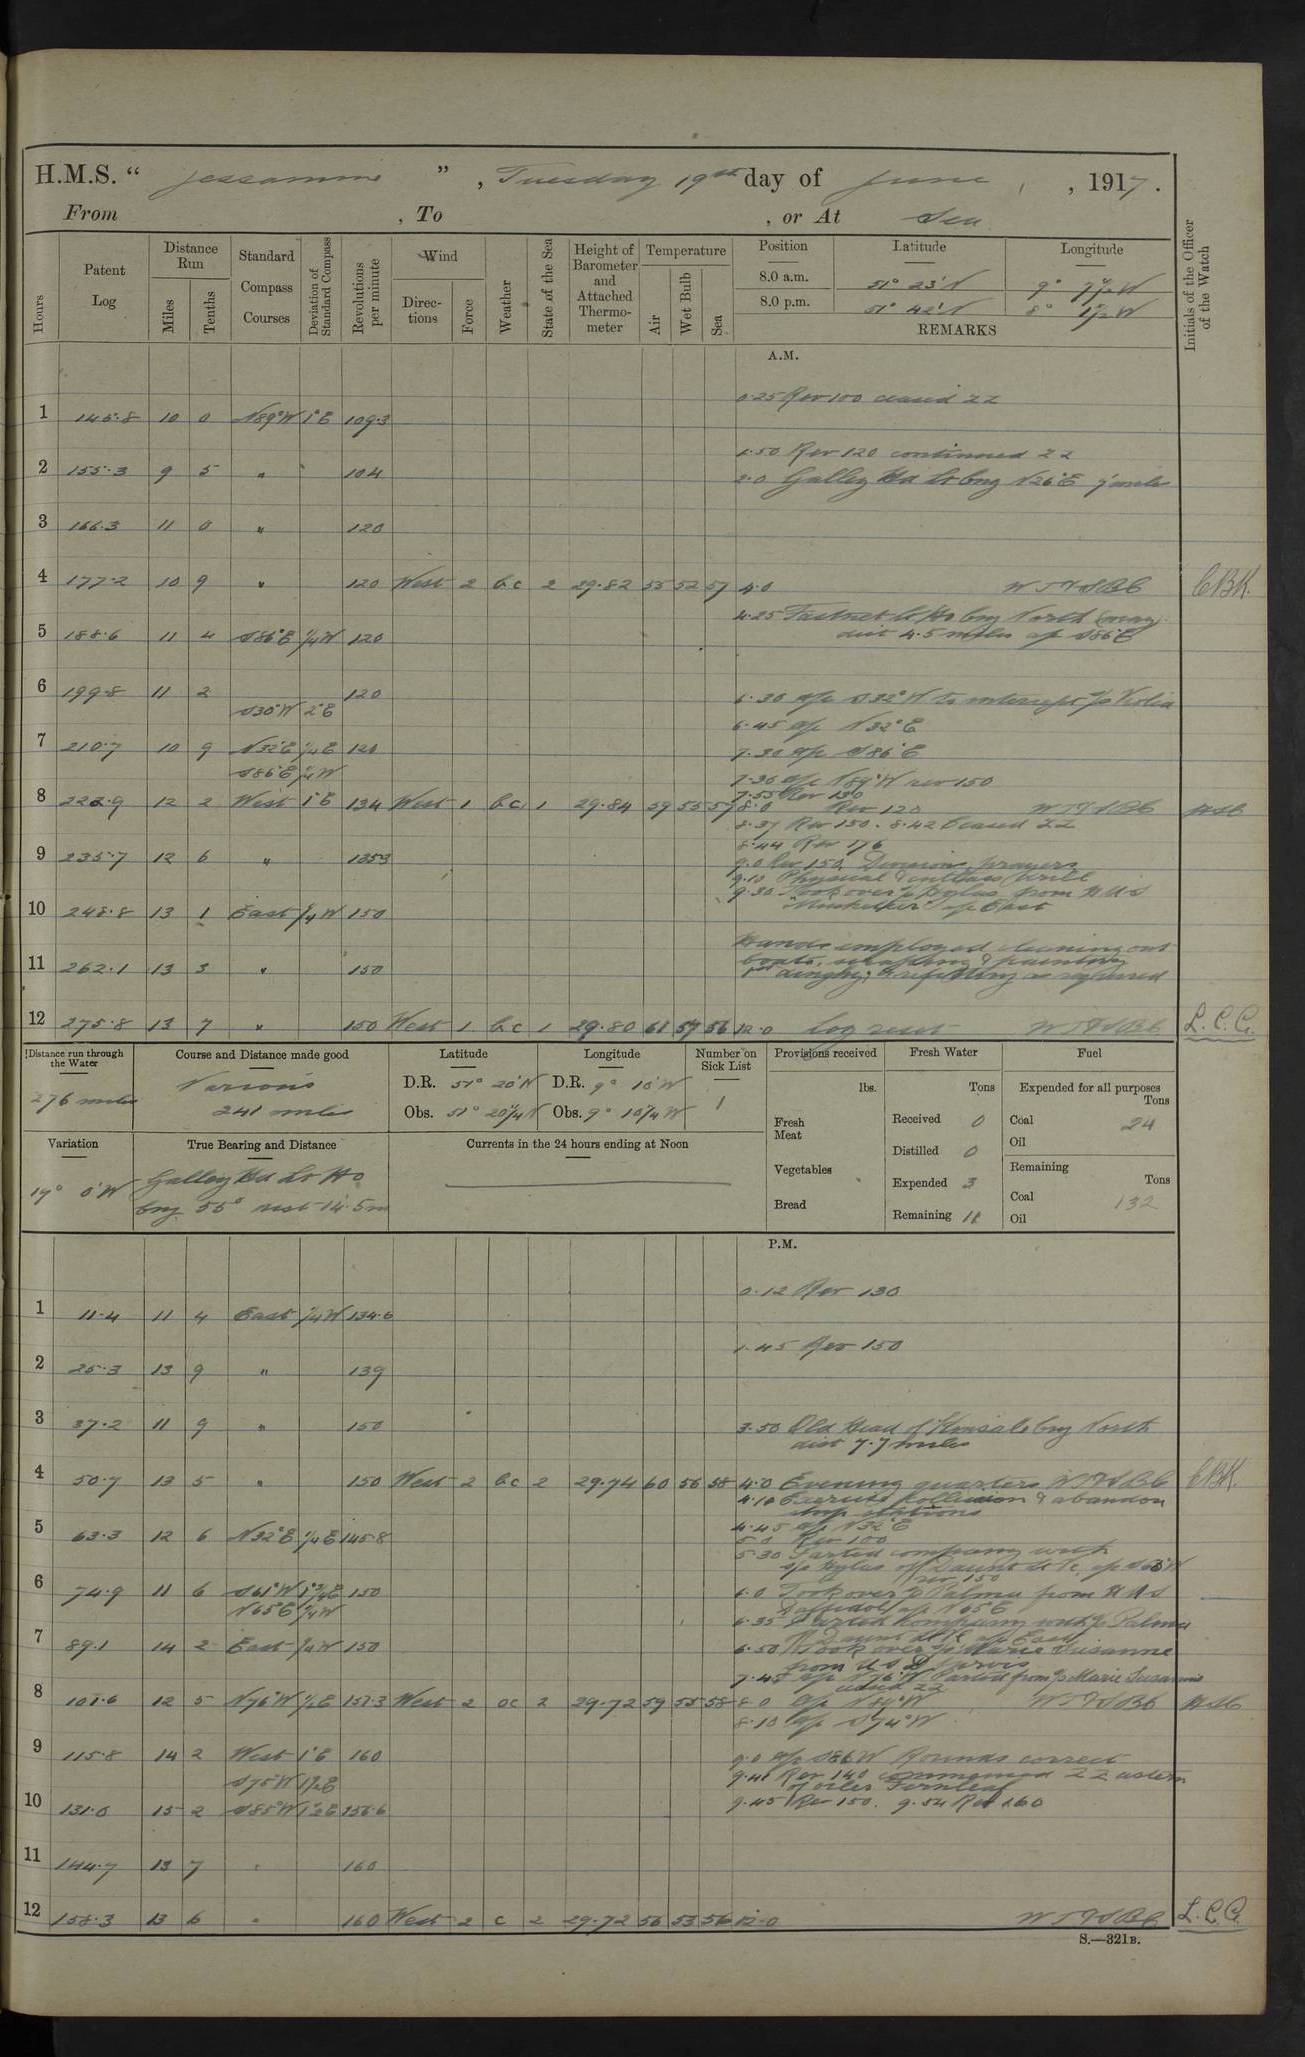 H.M.S. " Jessamine ", Tuesday 19th day of June, 1917.
From , To , or At Sea
Hours
Patent Log
Distance Run
Miles
Tenths
Standard Compass Courses
Deviation of Standard Compass
Revolutions per minute
Wind
Directions
Force
Weather
State of the Sea
Height of Barometer and Attached Thermometer
Temperature
Air
Wet Bulb
Sea
Position Latitude Longitude
8.0 a.m. 51° 23' N 9° 7½ W
8.0 p.m. 51° 42' N 8° 1½ W
REMARKS
Initials of the Officer of the Watch
A.M.
0.25 Rev 100 ceased ZZ
1 145.8 10 0 N89°W 1°E 109.3
1.50 Rev 120 continued ZZ
2 155.3 9 5 " 104 2.0 Galley Hd Lt brg N26°E 7 miles
3 166.3 11 0 " 120
4 177.2 10 9 " 120 West 2 bc 2 29.82 55 52 57 4.0 CBK.
4.25 Fastnet Lt Ho brg North (mag)
5 188.6 11 4 S86°E ¼W 120 dist 4.5 miles a/c S86°E
6 199.8 11 2 120 6.30 a/c S32°W to intercept s/s
S30°W 2°E
6.45 a/c N32°E
7 210.7 10 9 N32°E ¼E 120 7.30 a/c S86°E
S86°E ¼W 7.36 a/c N89°W rev 150
7.55 Rev 130
8 222.9 12 2 West 1°E 134 West 1 bc 1 29.84 59 55 57 8.0 Rev 120
8.37 Rev 150. 8.42 Ceased ZZ
8.44 Rev 176
9 235.7 12 6 " 135.3 9.0 Rev 150. Divisions, prayers
9.10 Physical & cutlass drill
9.30 Took over s/s Hylas from HMS
10 248.8 13 1 East ¼W 150 "Musketeer" a/c East
Hands employed cleaning out
11 262.1 13 3 " 150 boats, scraping & painting
1st dinghy, & refitting as required
12 275.8 13 7 " 150 West 1 bc 1 29.80 61 57 56 12.0 Log reset L.C.G.
Distance run through the Water
276 miles
Course and Distance made good
Various
241 miles
Latitude
D.R. 51° 20' N
Obs. 51° 20¼ N
Longitude
D.R. 9° 10' W
Obs. 9° 10¼ W
Number on Sick List
1
Provisions received
lbs.
Fresh Meat
Vegetables
Bread
Fresh Water
Tons
Received 0
Distilled 0
Expended 3
Remaining 18
Fuel
Expended for all purposes
Tons
Coal 24
Oil
Remaining
Tons
Coal 132
Oil
Variation
19° 0' W
True Bearing and Distance
Galley Hd Lt Ho
brg 55° dist 14.5 m
Currents in the 24 hours ending at Noon
P.M.
0.12 Rev 130
1 11.4 11 4 East ¼W 134.6
1.45 Rev 150
2 25.3 13 9 " 139
3 37.2 11 9 " 150 3.50 Old Head of Kinsale brg North
dist 7.7 miles
4 50.7 13 5 " 150 West 2 bc 2 29.74 60 56 58 4.0 Evening quarters CBK.
4.10 Exercise Collision & abandon
ship stations
4.45 a/c N32°E
5 63.3 12 6 N32°E ¼E 145.8 5.0 Rev 100
5.30 Parted company with
s/s Hylas off Daunt Lt V.
rev 150
6 74.9 11 6 S61°W 1¾E 150 6.0 Took over s/s Palma from HMS
N65°E ¼W Daffodil a/c N65°E
6.35 Parted Company with s/s Palma
7 89.1 14 2 East ¼W 150 6.50 Took over s/s Marie Susanne
from USS Jarvis
7.45 a/c N76°W Parted from s/s Marie Susanne
ceased ZZ
8 101.6 12 5 N76°W ½E 157.3 West 2 oc 2 29.72 59 55 58 8.0 a/c N89°W
8.10 a/c S74°W
9 115.8 14 2 West 1°E 160 9.0 a/c S86W Rounds correct
S75°W 1½E 9.41 Rev 140 commenced ZZ astern
of oiler Fernleaf
10 131.0 15 2 S85°W 1½E 156.6 9.45 Rev 150. 9.54 Rev 160
11 144.7 13 7 " 160
12 158.3 13 6 " 160 West 2 c 2 29.72 56 53 56 12.0 L.C.G.
S.—321B.